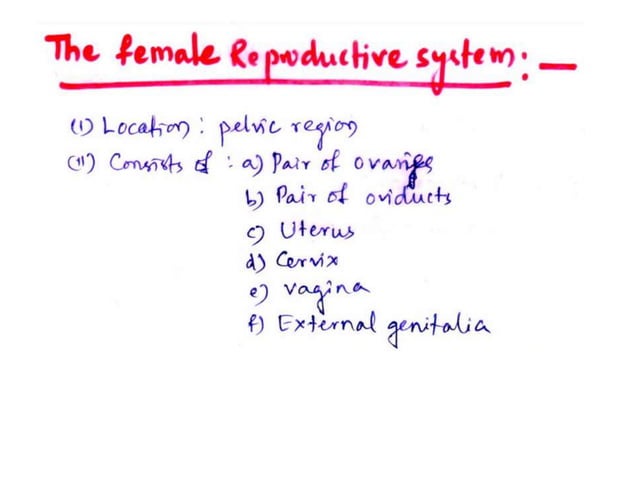 The female Reproductive system:—
(i) Location: pelvic region
(ii) Consists of : a) Pair of ovaries
b) Pair of oviducts
c) Uterus
d) Cervix
e) vagina
f) External genitalia